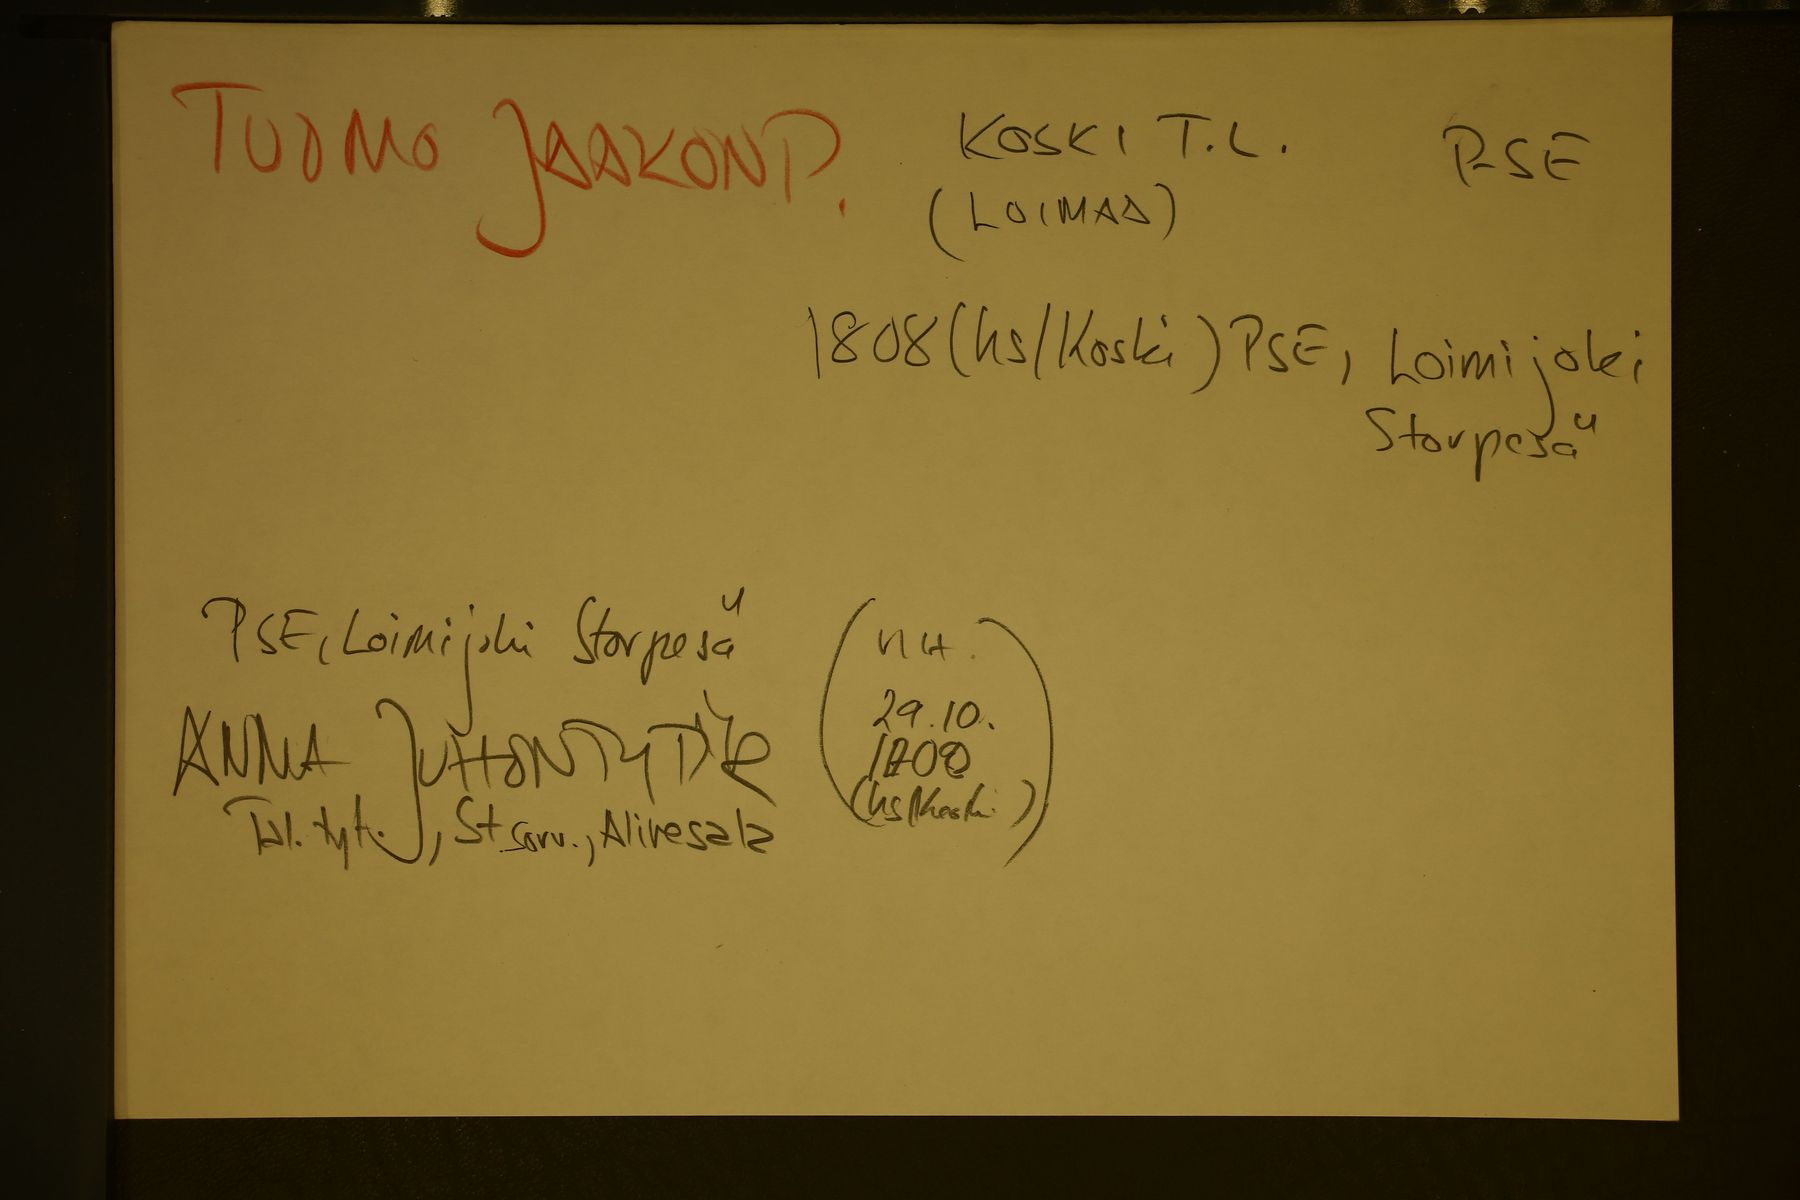 TUOMO JAAKONP. KOSKI T.L. PSE
(LOIMAA)
1808 (hs/Koski) PSE, Loimijoki
Storpesä
PSE, Loimijoki Storpesä
ANNA JUHONTYTÄR
Tal. tyt., St sorv., Alivesala
29.10.
1808
(hs/Koski)